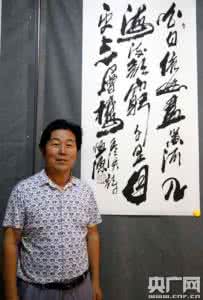 白日依山盡黄河入
海流欲窮千里目
更上一層樓
央广网
www.cnr.cn